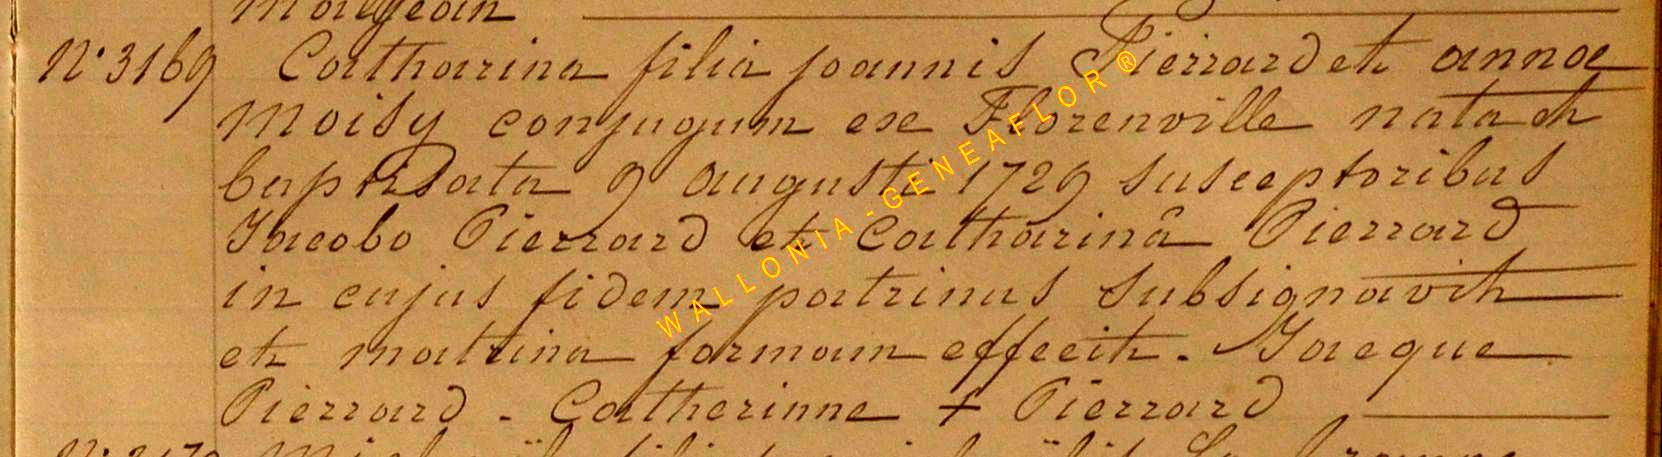 N° 3169 Catharina filia joannis Pierrard et annae
Moisy conjugum ex Florenville nata et
baptisata 9 augusti 1729 susceptoribus
Jacobo Pierrard et Catharinâ Pierrard
in cujus fidem patrinus subsignavit
et matrina formam effecit. Jacque
Pierrard - Catherinne + Pierrard
WALLONIA-GENEAFLOR®